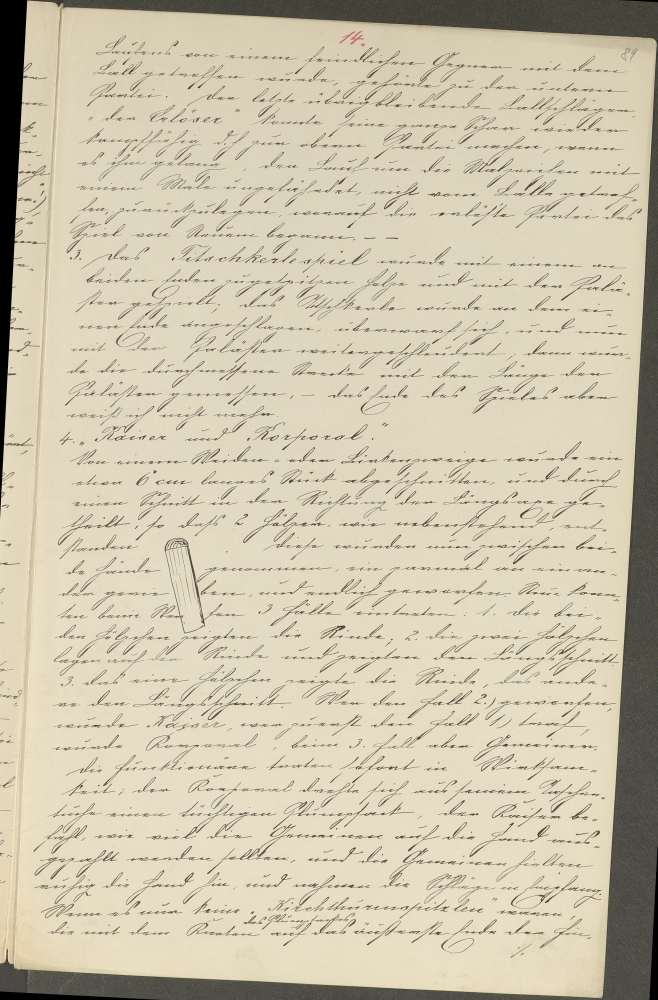 14.
89
Laufens von einem feindlichen Gegner mit dem
Ball getroffen wurde, gehörte zu der unteren
Partei. Der letzte übrigbleibende Ballschläger
"der Erlöser" konnte seine ganze Schar wieder
kampffähig d. h. zur oberen Partei machen, wenn
es ihm gelang den Lauf um die Malzeichen mit
einem Male ungefährdet, nicht vom Balle getrof-
fen, zurückzulegen, worauf die erlöste Partei das
Spiel von Neuem begann. – –
3. Das Titschkerlespiel wurde mit einem an
beiden Enden zugespitzen Holze und mit der Palä-
ster gespielt; das Titschkerle wurde an dem ei-
nen Ende angeschlagen, überwarf sich, und nun
mit der Paläster weitergeschleudert, dann wur-
de die durchmessene Strecke mit der Länge der
Paläster gemessen, – das Ende des Spieles aber
weiß ich nicht mehr.
4. "Kaiser und Korporal."
Von einem Weiden- oder Birkenzweige wurde ein
etwa 6 cm langes Stück abgeschnitten, und durch
einen Schnitt in der Richtung der Längsaxe ge-
theilt, so daß 2 Hölzer, wie nebenstehend, ent-
standen diese wurden nun zwischen bei-
de Hände genommen, ein paarmal an einan-
der gerie ben, und endlich geworfen. Nun konn-
ten beim Wer fen 3 Fälle eintreten: 1. die bei-
den Hölzchen zeigten die Rinde; 2. die zwei Hölzchen
lagen auf der Rinde und zeigten den Längsschnitt
3. das eine Hölzchen zeigte die Rinde, das ande-
re den Längsschnitt. Wer den Fall 2.) geworfen,
wurde Kaiser, wer zuerst den Fall 1) traf,
wurde Korporal, beim 3. Fall aber Gemeiner.
Die Funktionäre traten sofort in Wirksam-
keit; der Korporal drehte sich aus seinem Taschen-
tuche einen tüchtigen Plumpsack, der Kaiser be-
fahl, wie viel die Gemeinen auf die Hand aus-
gezahlt werden sollten, und die Gemeinen hielten
ruhig die Hand hin, und nahmen die Schläge in Empfang.
Wenn es nur keine "Kirchthurmspitzeln" waren,
des Plumpsackes
die mit dem Knoten auf das äußerste Ende der Fin-